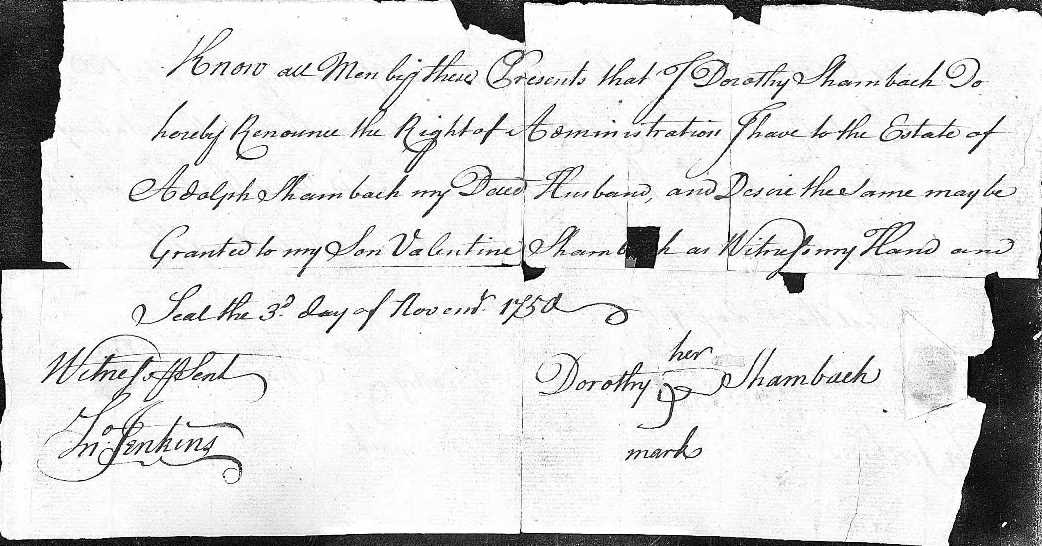 Know all Men by these Presents that I Dorothy Shambach Do
hereby Renounce the Right of Administration I have to the Estate of
Adolph Shambach my Deced Husband, and Desire the same may be
Granted to my Son Valentine Shamb h as Witness my Hand and
Seal the 3d. day of Novemr. 1750
Witness Present
her
Dorothy Shambach
mark
Jno. Jenkins